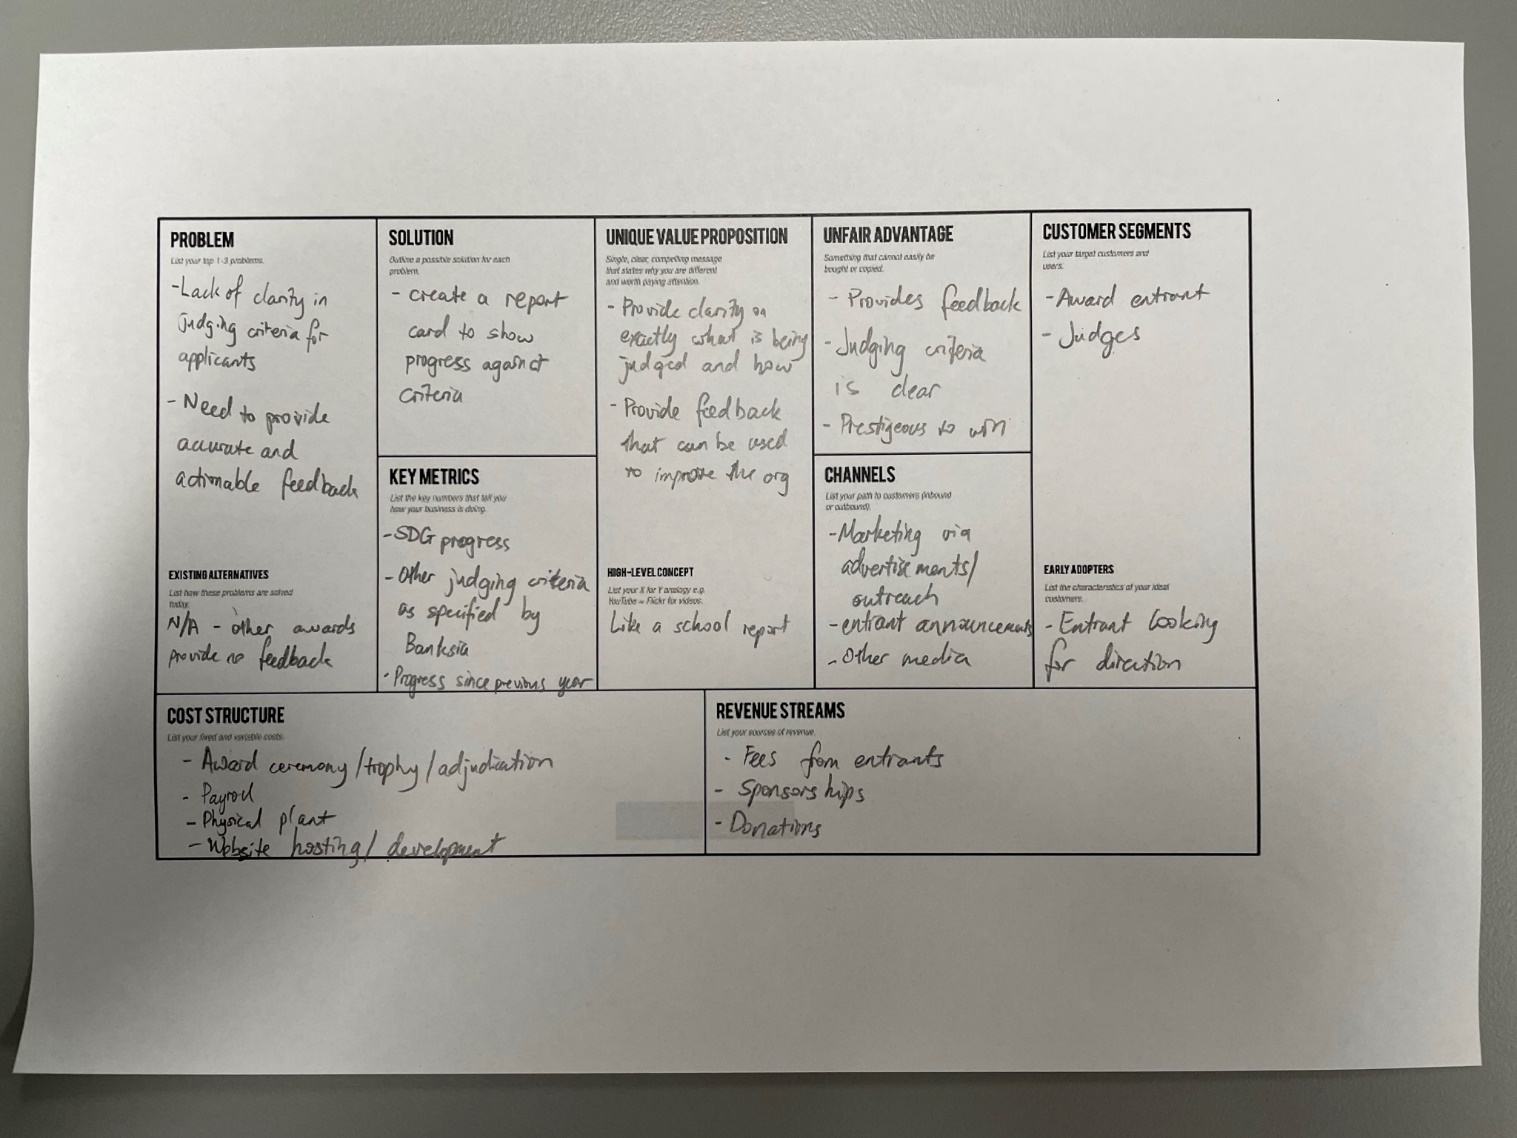 PROBLEM
List your top 1-3 problems.
- Lack of clarity in
judging criteria for
applicants
- Need to provide
accurate and
actionable feedback
EXISTING ALTERNATIVES
List how these problems are solved
today.
N/A - other awards
provide no feedback
SOLUTION
Outline a possible solution for each
problem.
- create a report
card to show
progress against
criteria
KEY METRICS
List the key numbers that tell you
how your business is doing.
- SDG progress
- Other judging criteria
as specified by
Banksia
- Progress since previous year
UNIQUE VALUE PROPOSITION
Single, clear, compelling message
that states why you are different
and worth paying attention.
- Provide clarity on
exactly what is being
judged and how
- Provide feedback
that can be used
to improve the org
HIGH-LEVEL CONCEPT
List your X for Y analogy e.g.
YouTube = Flickr for videos.
Like a school report
UNFAIR ADVANTAGE
Something that cannot easily be
bought or copied.
- Provides feedback
- Judging criteria
is clear
- Prestigeous to win
CHANNELS
List your path to customers (inbound
or outbound).
- Marketing via
advertisements/
outreach
- entrant announcements
- Other media
CUSTOMER SEGMENTS
List your target customers and
users.
- Award entrant
- Judges
EARLY ADOPTERS
List the characteristics of your ideal
customers.
- Entrant looking
for direction
COST STRUCTURE
List your fixed and variable costs.
- Award ceremony/trophy/adjudication
- Payroll
- Physical plant
- Website hosting/development
REVENUE STREAMS
List your sources of revenue.
- Fees from entrants
- Sponsorships
- Donations